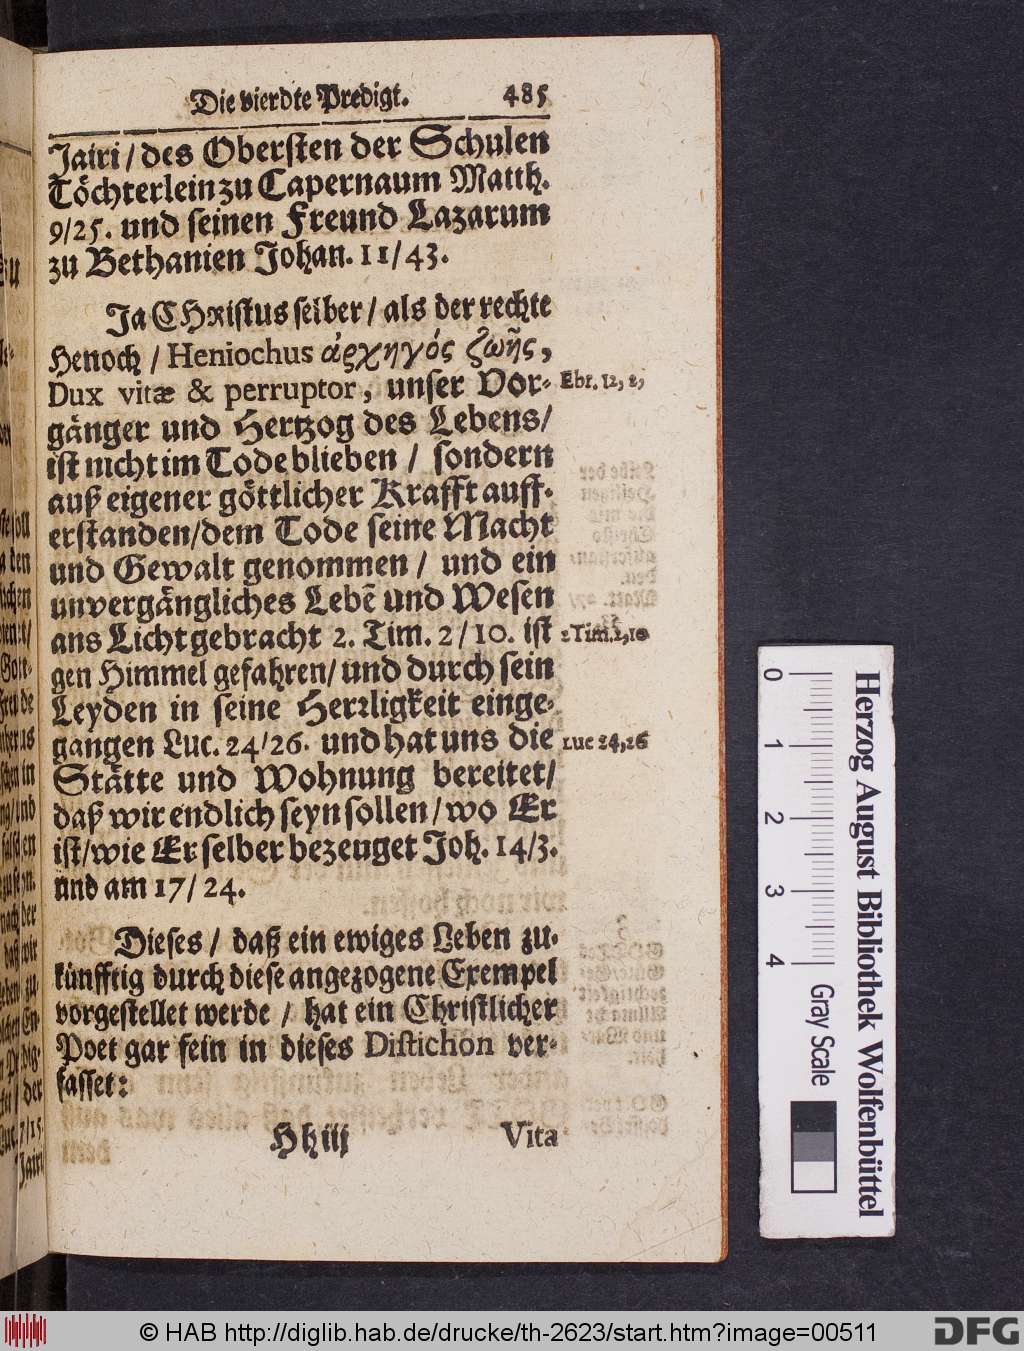 Die vierdte Predigt. 485
Jairi / des Obersten der Schulen
Töchterlein zu Capernaum Matth.
9/25. und seinen Freund Lazarum
zu Bethanien Johan. 11/43.
Ja CHristus selber / als der rechte
Henoch / Heniochus ἀρχηγός ζωῆς,
Dux vitæ & perruptor, unser Vor-
Ebr. 12, 2,
gänger und Hertzog des Lebens/
ist nicht im Tode blieben / sondern
auß eigener göttlicher Krafft auff-
erstanden/dem Tode seine Macht
und Gewalt genommen / und ein
unvergängliches Lebē und Wesen
ans Licht gebracht 2. Tim. 2/10. ist
2 Tim. 1, 10
gen Himmel gefahren/ und durch sein
Leyden in seine Herꝛligkeit einge-
gangen Luc. 24/26. und hat uns die
Luc 24, 26
Stätte und Wohnung bereitet/
daß wir endlich seyn sollen / wo Er
ist/wie Er selber bezeuget Joh. 14/3.
und am 17/24.
Dieses / daß ein ewiges Leben zu-
künfftig durch diese angezogene Exempel
vorgestellet werde / hat ein Christlicher
Poet gar fein in dieses Distichon ver-
fasset:
Hh iij Vita
Herzog August Bibliothek Wolfenbüttel
0 1 2 3 4
Gray Scale
© HAB http://diglib.hab.de/drucke/th-2623/start.htm?image=00511
DFG